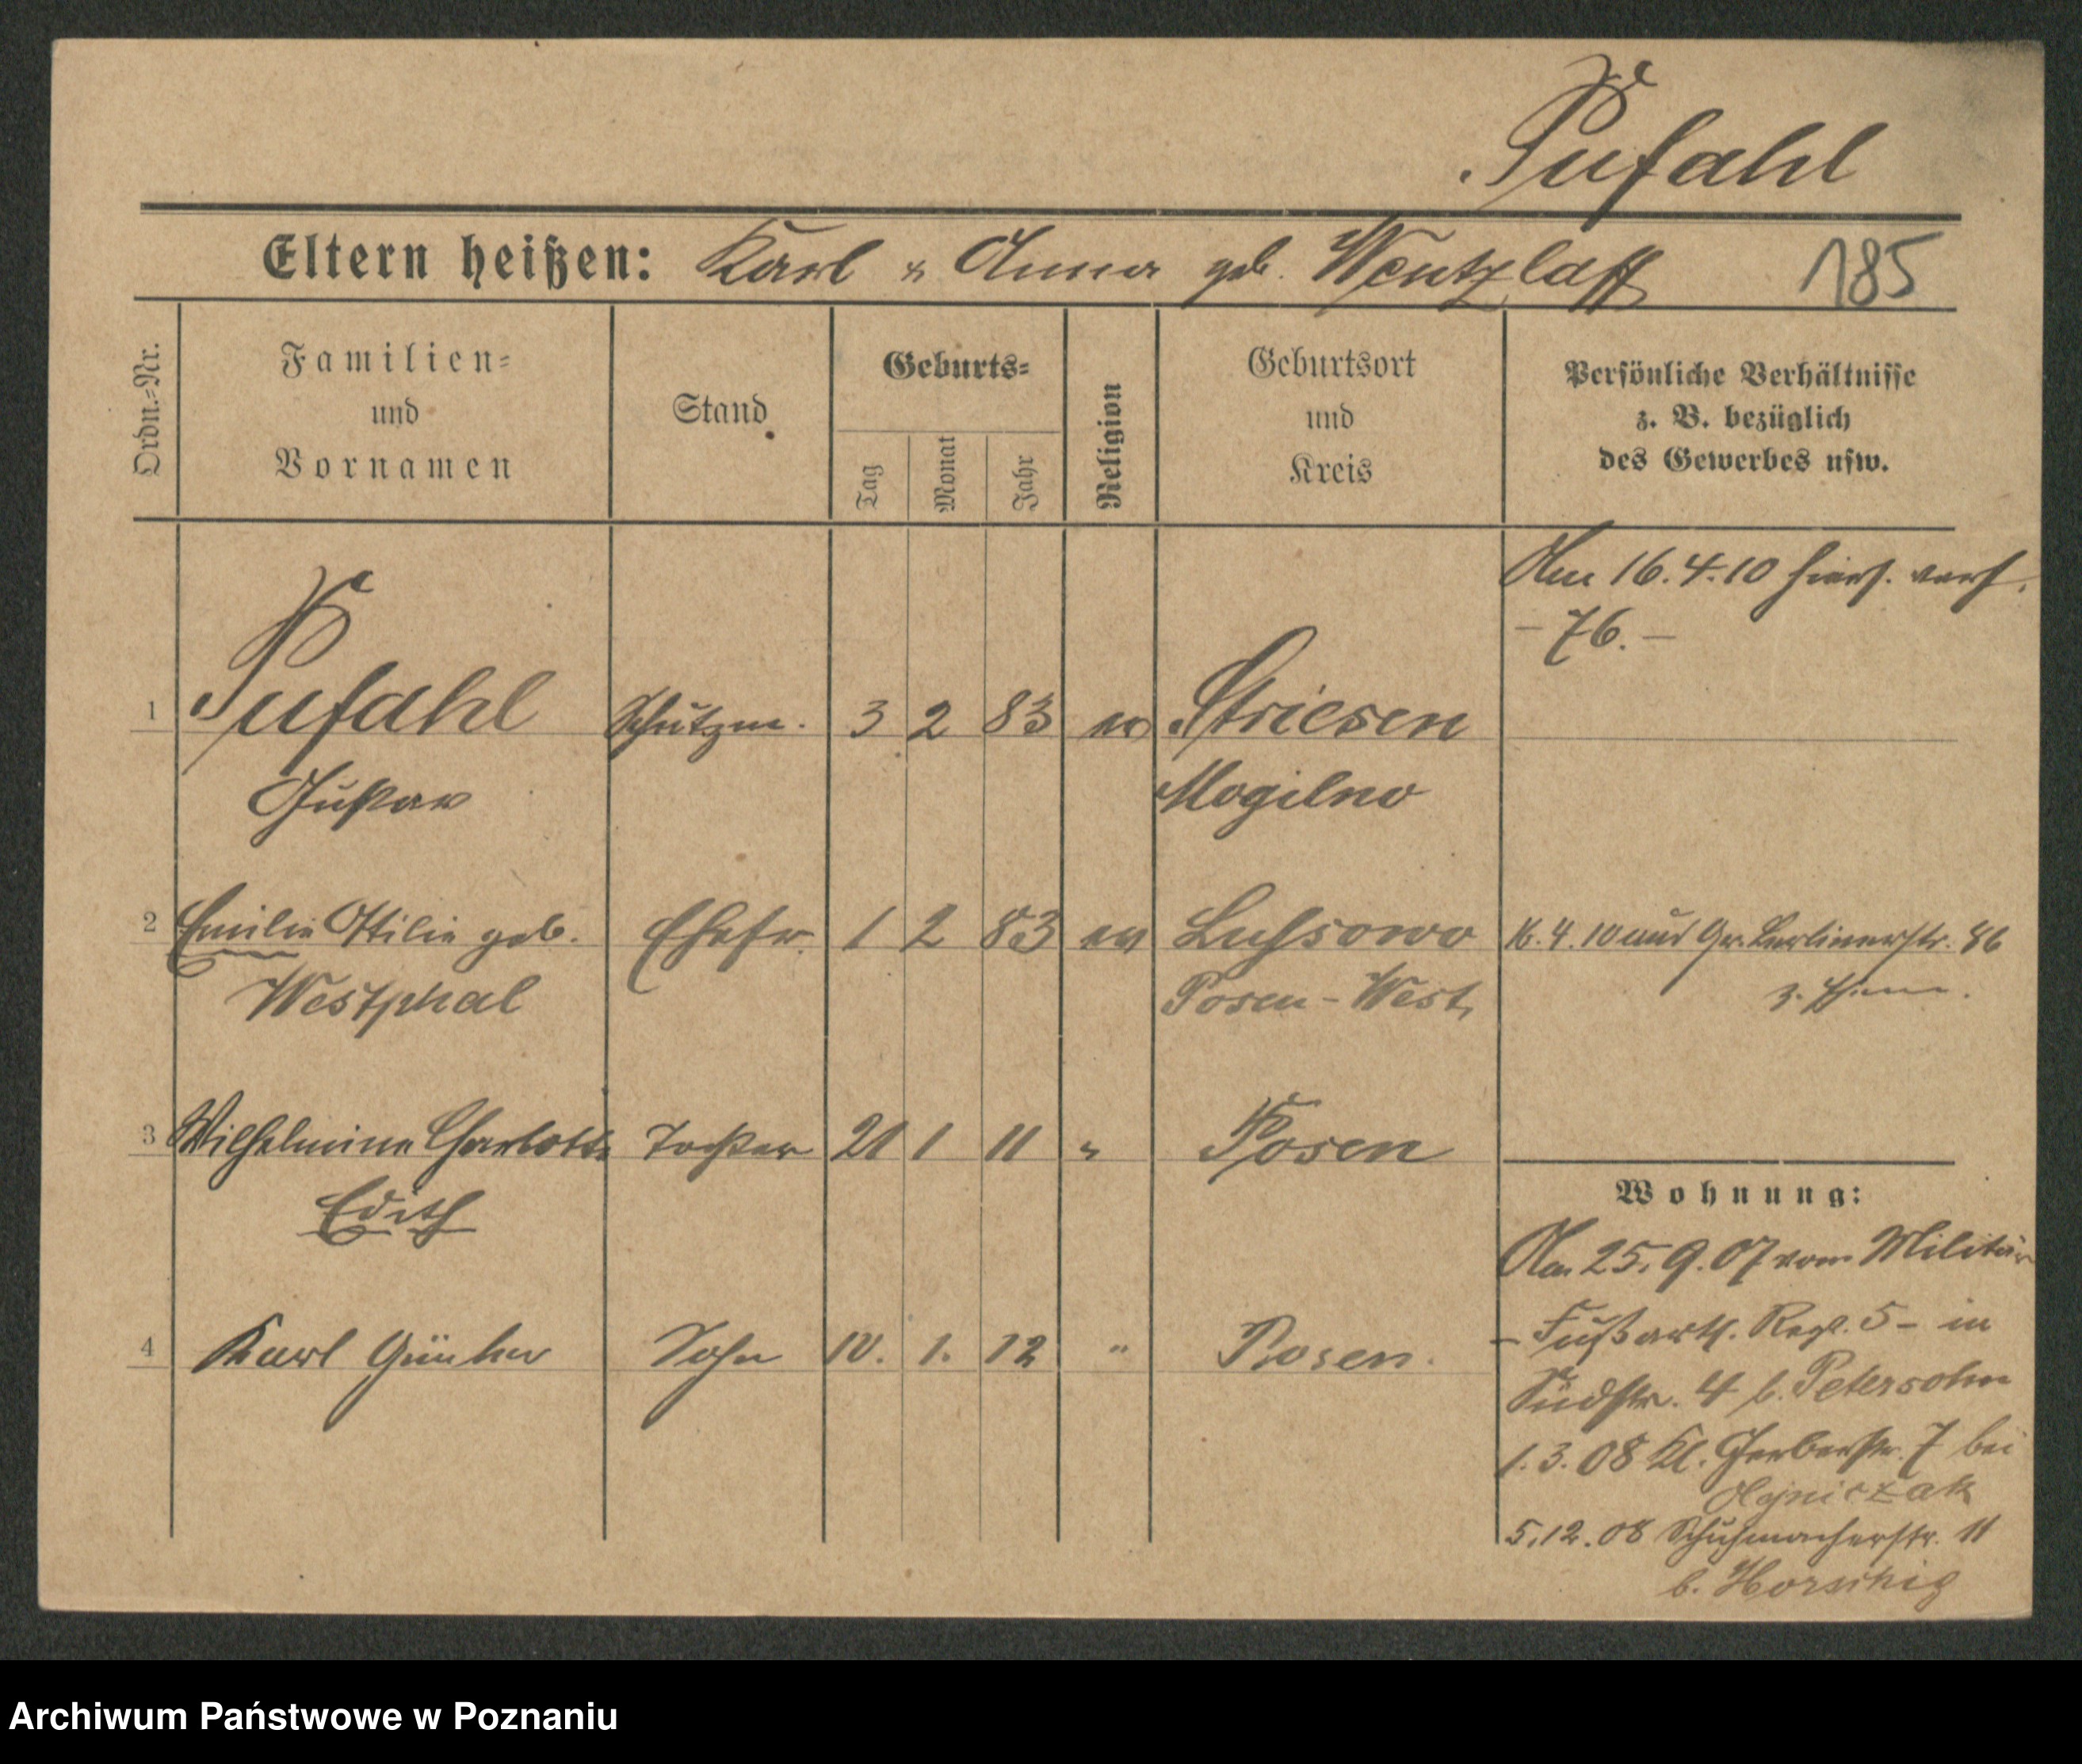 Pufahl
Eltern heißen: Karl u Anna geb. Wentzlaff 185
Ordn.-Nr.
Familien-
und
Vornamen
Stand
Geburts-
Tag
Monat
Jahr
Religion
Geburtsort
und
Kreis
Persönliche Verhältnisse
z. B. bezüglich
des Gewerbes usw.
Am 16.4.10 hiers. verh.
- 76. -
1 Pufahl Schutzm. 3 2 83 ev Striesen
Gustav Mogilno
2 Emilie Ottilie geb. Ehefr. 1 2 83 ev Lussowo 16.4.10 aus Gr. Berlinerstr. 86
Westphal Posen-West
3 Wilhelmine Charlotte Tochter 21 1 11 " Posen
Edith
4 Karl Günther Sohn 10. 1. 12 " Posen.
Wohnung:
Am 25.9.07 vom Militär
- Fußartl. Regt. 5 - in
Südstr. 4 b. Petersohn
1.3.08 Kl. Gerberstr. 7 bei
5.12.08 Schuhmacherstr. 11
b. Horschig
Archiwum Państwowe w Poznaniu